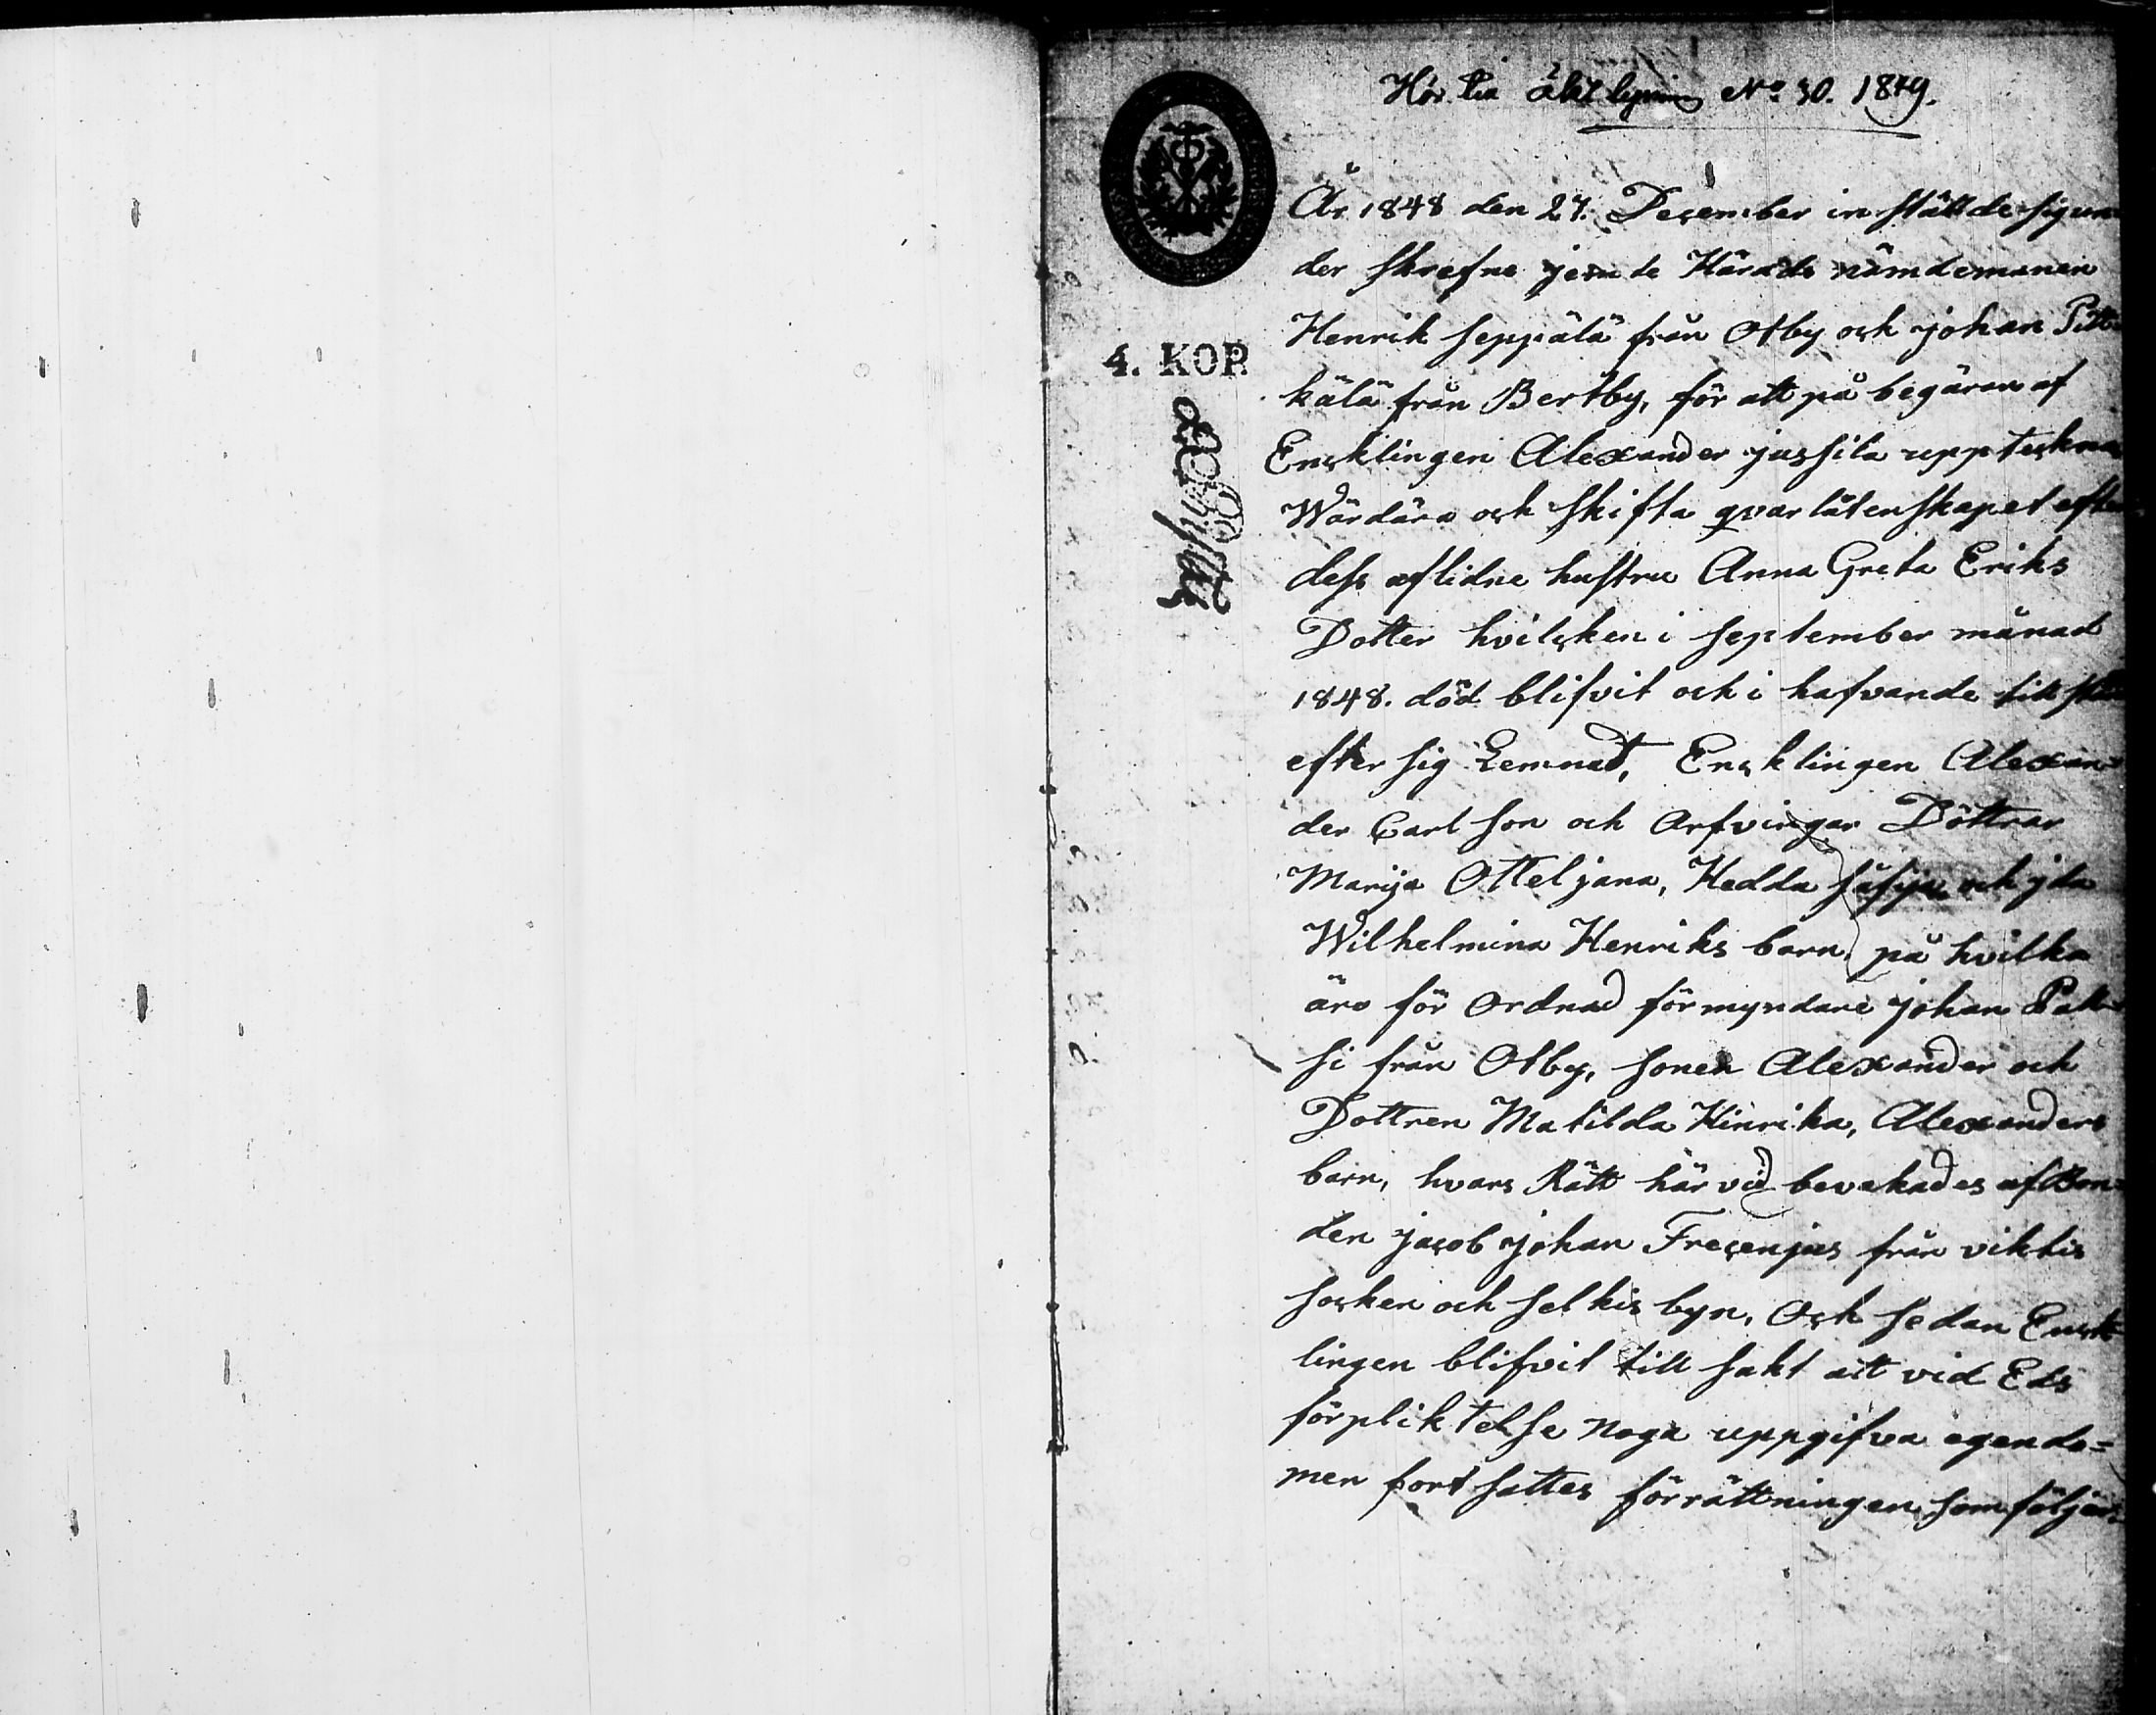 Hör till äkt lysning No 30. 1849.
År 1848 den 27. December in stälde sig un=
der skrefne jemte Härads nämdemanen
Henrik Seppälä från Otby och johan Pitt=
4. KOP.
kälä från Bertby, för att på begäran af
Encklingen Alexander jussila uppteckna
Wärdära och skifta qvarlåtenskapet efter
dess aflidne hustru Anna Greta Eriks
Dotter hvilcken i September månad
1848. död blifvit och i hafvande
efter sig Lemnat, Encklingen Alexan=
der Carlson och Arfvingar Döttrar
Marija Otteljana, Hedda och jda
Wilhelmina Henriks barn, på hvilka
äro för Ordnad förmyndare johan
si från Otby, sonen Alexander och
Dottren Matilda Hinrika, Alexanders
barn, hvars Rätt här vid bevakades af Bon=
den jacob johan Frecenjus från viktis
Socken och Selkis byn, Och sedan Enck=
lingen blifvit till sakt att vid Eds
förpliktelse noga uppgifva egendo=
men fort sattes förrättningen som följer: